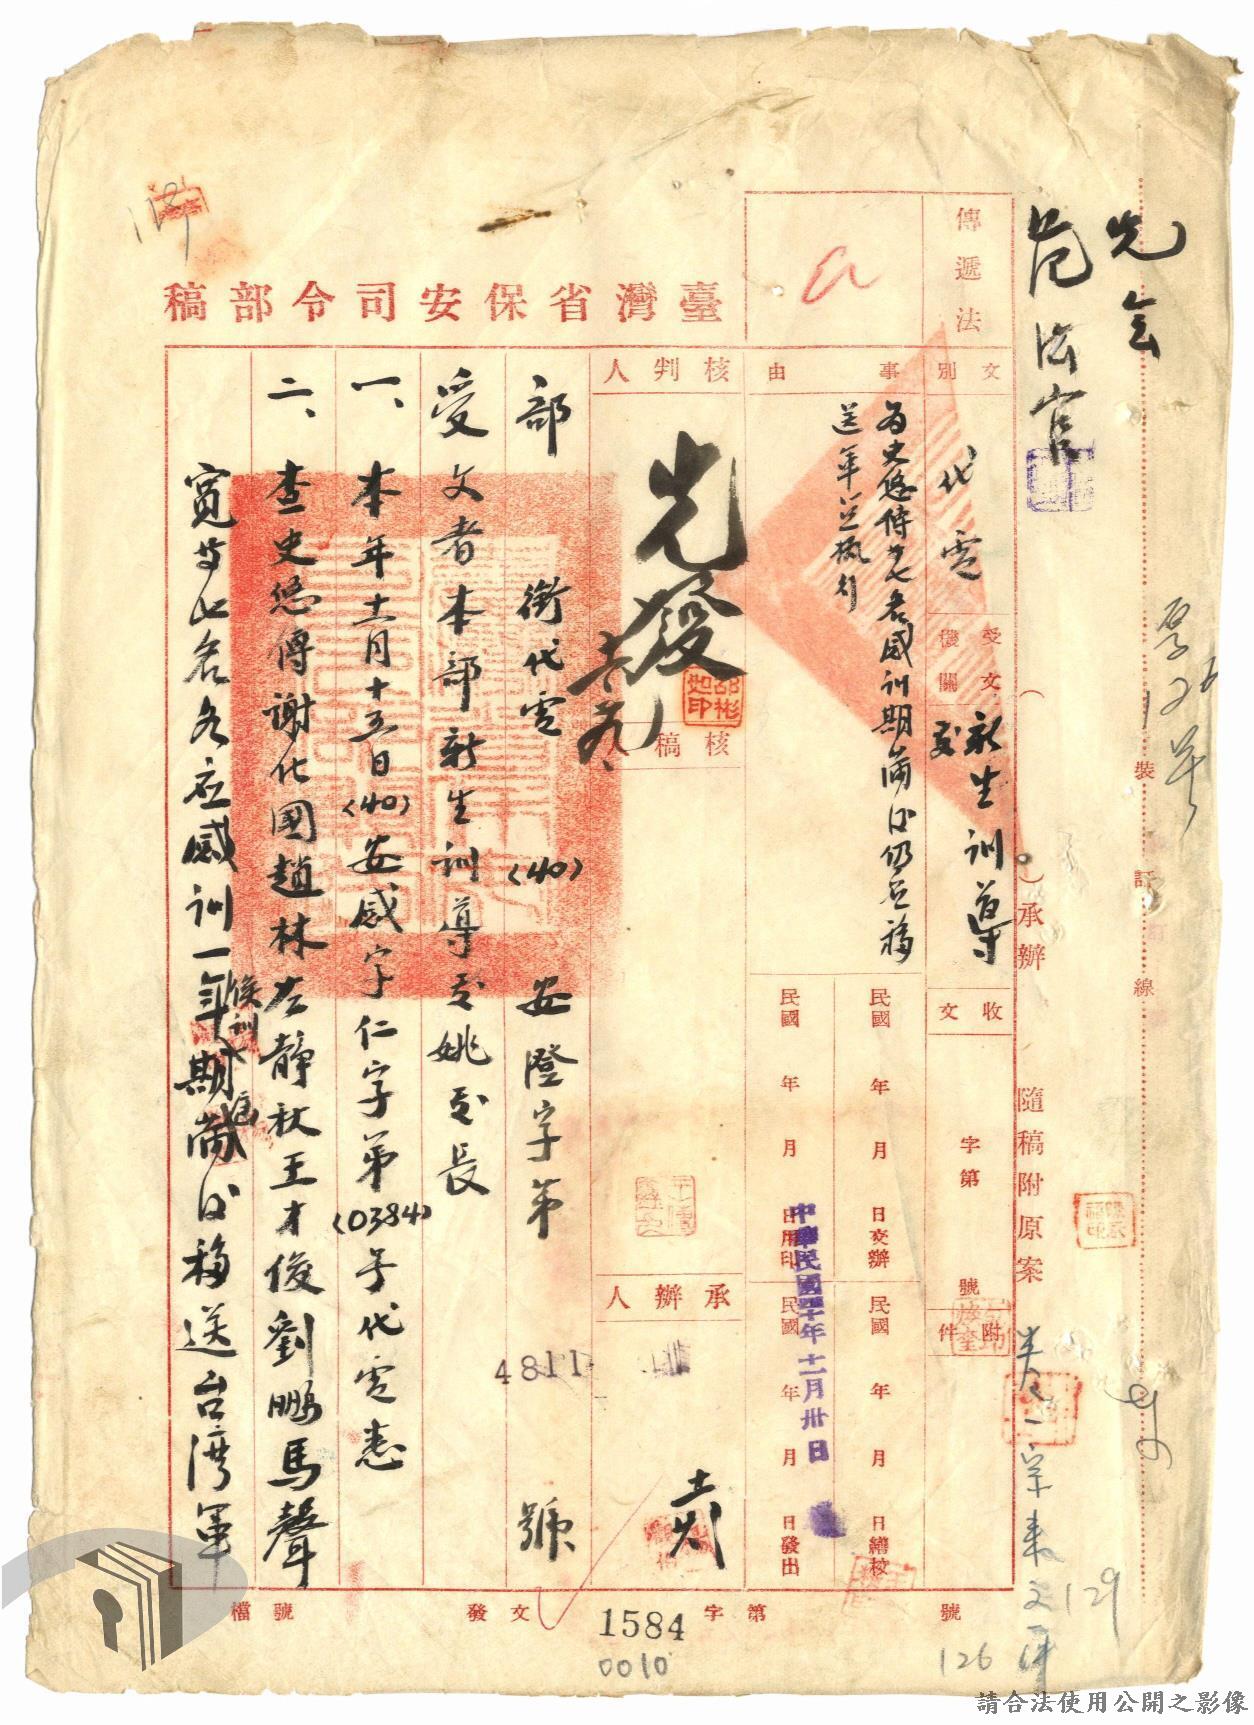 先會
范法官
裝訂線
（　）承辦
隨稿附原案
傳遞法
臺灣省保安司令部稿
文別
代電
受文機關
新生訓導處
收文
字第
號
附件
事由
為史悠傳等七名感訓期滿後仍應移
送軍監執行
民國 年 月 日交辦
民國 年 月 日繕校
民國 年 月 日用印
民國 年 月 日發出
中華民國四十年十一月卅日
核判人
先發
邵彬如印
核稿人
承辦人
部 銜代電 (40) 安澄字第 4811 號
受文者本部新生訓導處姚處長
一、本年十一月十三日(40)安感字仁字第(0384)號代電悉
二、查史悠傳謝化國趙林左靜秋王才俊劉鵬馬聲
寬等七名各應感訓一年期滿後移送台灣軍
候訓
檔號
發文
字第
號
1584
0010
126
129
請合法使用公開之影像